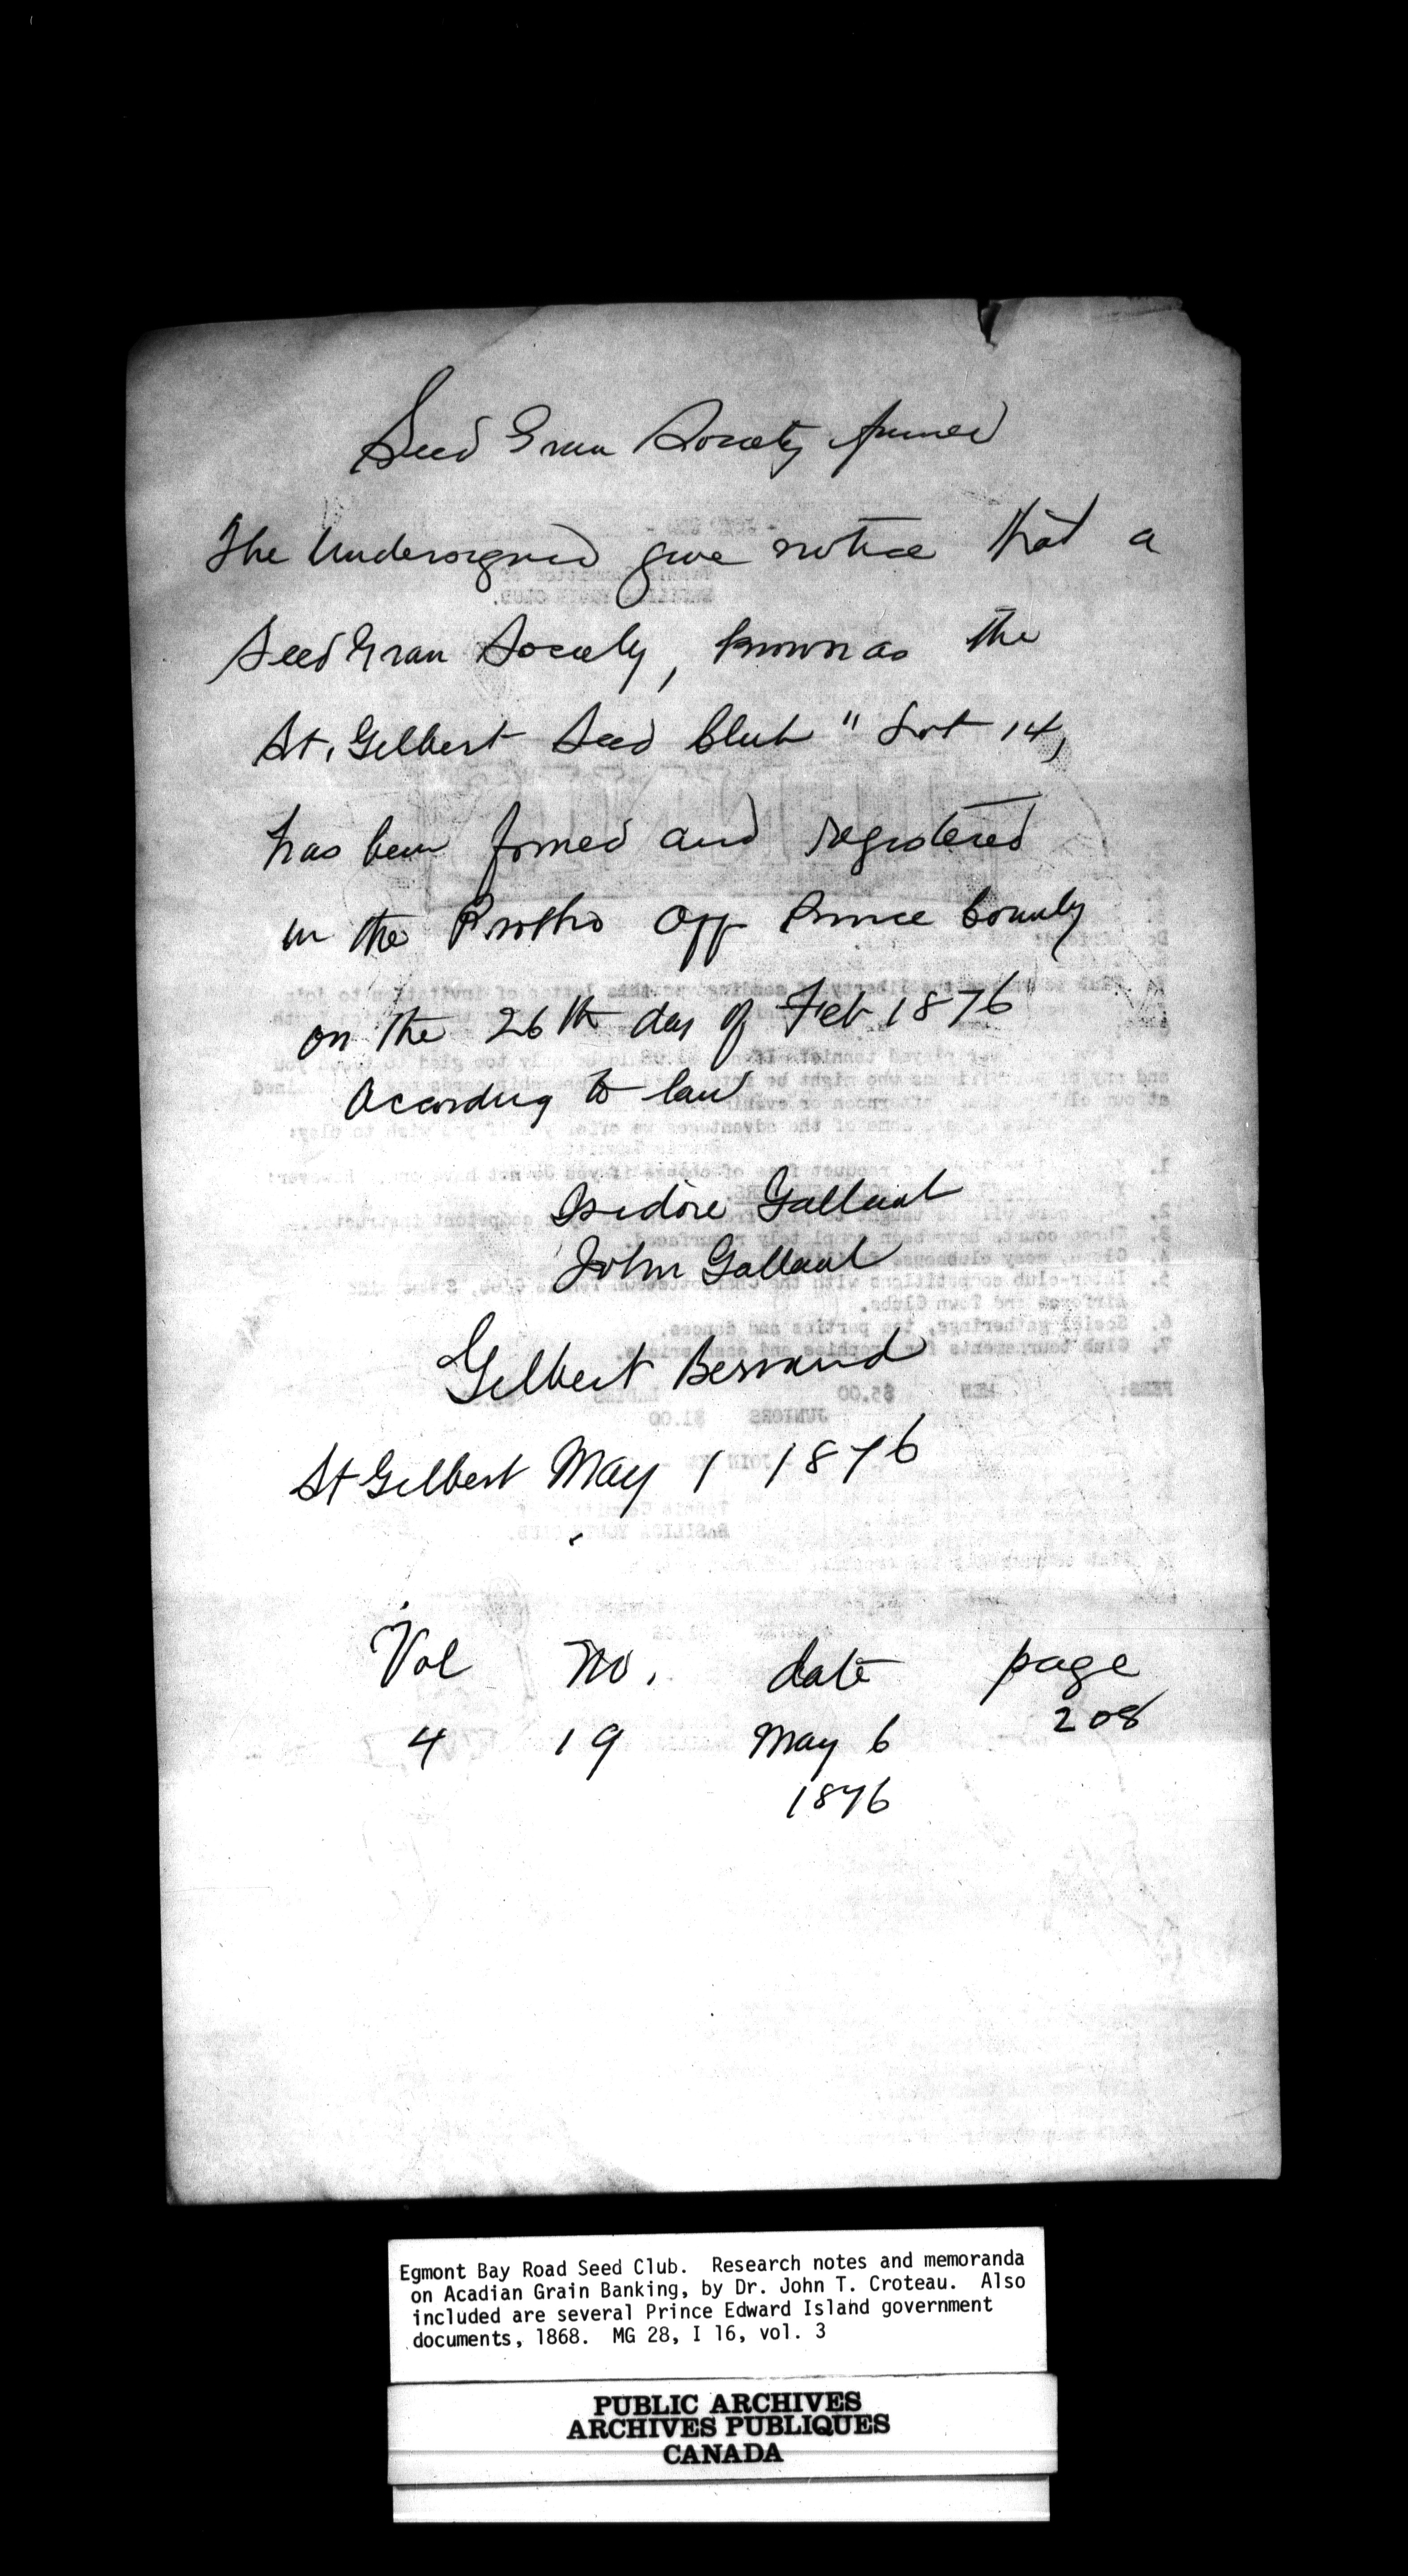 Seed Grain Society formed
The Undersigned give notice that a
Seed Grain Society, known as the
St. Gilbert Seed Club " Lot 14,
has been formed and registered
in the Protho Off Prince County
on the 26th day of Feb 1876
According to law
Isidore Gallant
John Gallant
Gilbert Bernard
St Gilbert May 1 1876
Vol no. date page
4 19 May 6 208
1876
Egmont Bay Road Seed Club. Research notes and memoranda
on Acadian Grain Banking, by Dr. John T. Croteau. Also
included are several Prince Edward Island government
documents, 1868. MG 28, I 16, vol. 3
PUBLIC ARCHIVES
ARCHIVES PUBLIQUES
CANADA